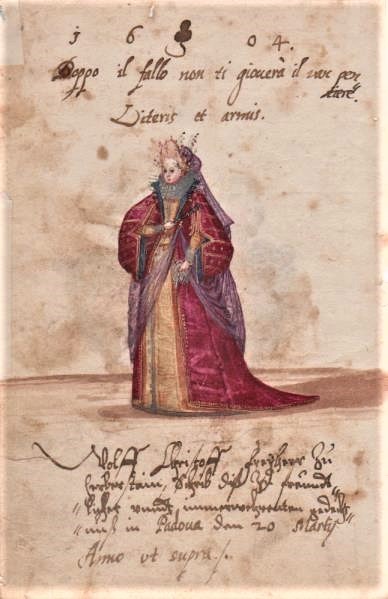 1 6 04.
Doppo il fallo non ti giouerà il van pen
tiere.
Literis et armis.
Wolff Christoff Freyherr zu
herberstain, Schrib diß zu freundt
licher vnndt immerwehrenten gedech
nuß in Padova den 20 Martij
Anno vt supra.